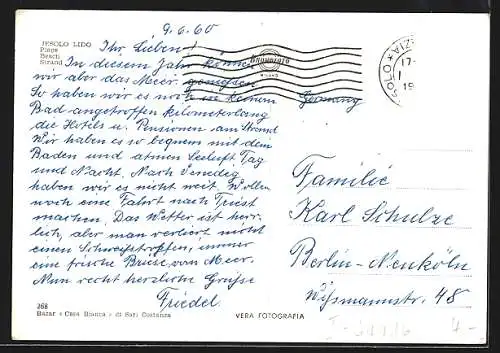 9.6.60
JESOLO LIDO
Plage
Beach
Strand
Ihr Lieben!
In diesem Jahr können
wir aber das Meer genießen
So haben wir es noch in keinem
Bad angetroffen kilometerlang
die Hotels u. Pensionen am Strand
Wir haben es so bequem mit dem
Baden und atmen Seeluft Tag
und Nacht. Nach Venedig
haben wir es nicht weit. Wollen
noch eine Fahrt nach Triest
machen. Das Wetter ist herr-
lich, aber man verliert nicht
einen Schweißtropfen, immer
eine frische Briese vom Meer.
Nun recht herzliche Grüsse
Friedel.
368
Bazar « Casa Bianca » di Sari Costanza
VERA FOTOGRAFIA
17-
19
Germany
Familie
Karl Schulze
Berlin-Neuköln
Wißmannstr. 48
4-